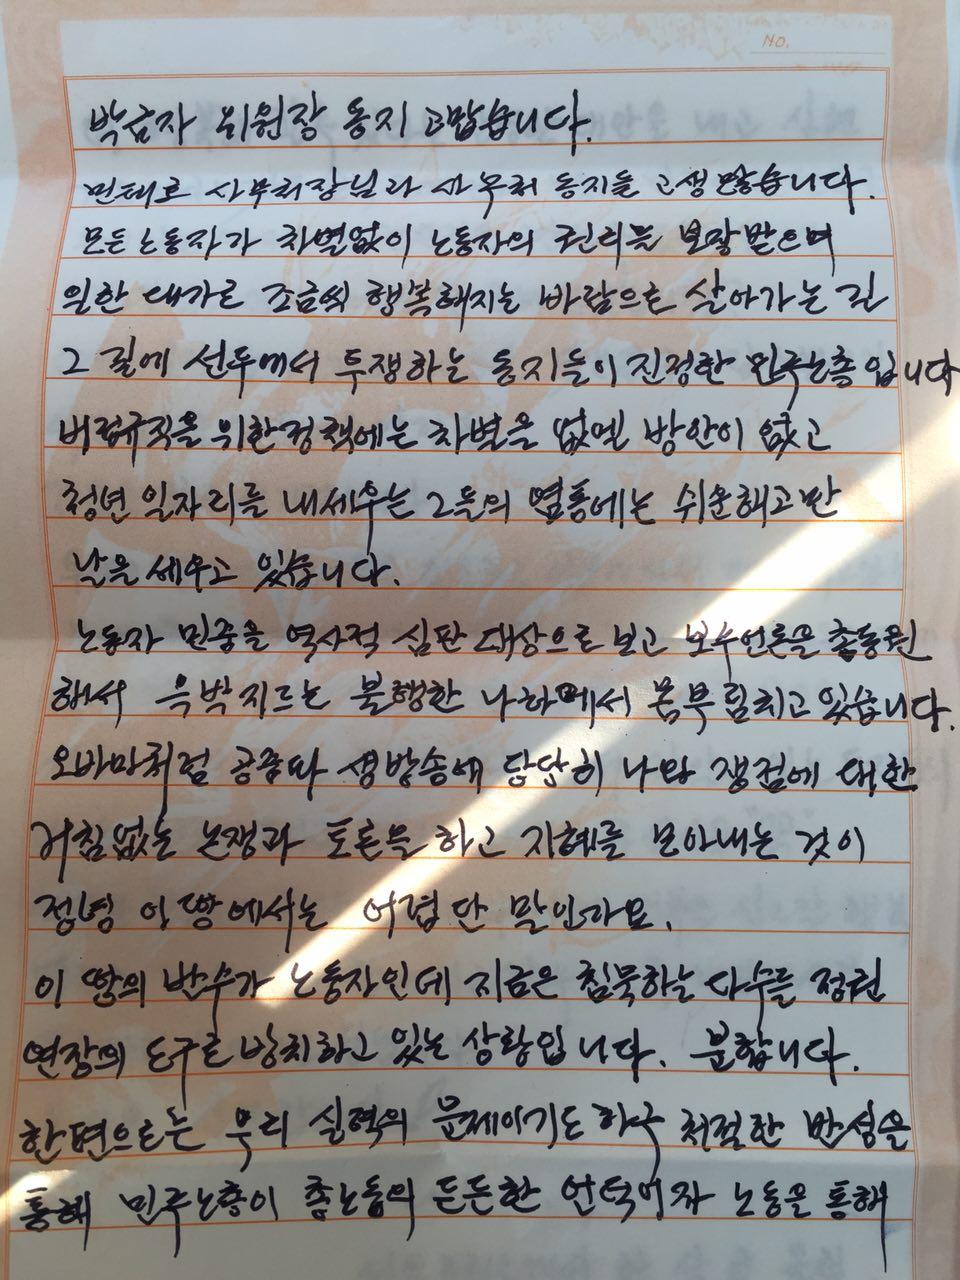 NO.
박금자 위원장 동지 고맙습니다.
민태호 사무처장님과 사무처 동지들 고생 많습니다.
모든 노동자가 차별없이 노동자의 권리를 보장 받으며
일한 대가로 조금씩 행복해지는 바람으로 살아가는 길
그 길에 선두에서 투쟁하는 동지들이 진정한 민주노총입니다
비정규직을 위한정책에는 차별을 없엘 방안이 없고
청년 일자리를 내세우는 그들의 염통에는 쉬운해고만
날을 세우고 있습니다.
노동자 민중을 역사적 심판 대상으로 보고 보수언론을 총동원
해서 윽박지르는 불행한 나라에서 몸부림치고 있습니다.
오바마처럼 공중파 생방송에 당당히 나와 쟁점에 대한
거침없는 논쟁과 토론을 하고 지혜를 모아내는 것이
정녕 이 땅에서는 어렵단 말인가요.
이 땅의 반수가 노동자인데 지금은 침묵하는 다수를 정권
연장의 도구로 방치하고 있는 상황입니다. 분합니다.
한편으로는 우리 실력의 문제이기도 하구 처절한 반성을
통해 민주노총이 총노동의 든든한 언덕이자 노동을 통해